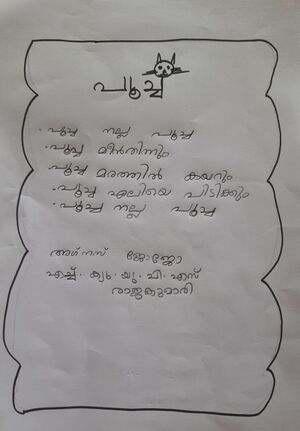 പൂച്ച
. പൂച്ച നല്ല പൂച്ച
. പൂച്ച മീൻതിന്നും
. പൂച്ച മരത്തിൽ കയറും
. പൂച്ച എലിയെ പിടിക്കും
. പൂച്ച നല്ല പൂച്ച
അഗ്നസ് ജോജോ
എച്ച്. ക്യു. യു. പി. എസ്
രാജകുമാരി